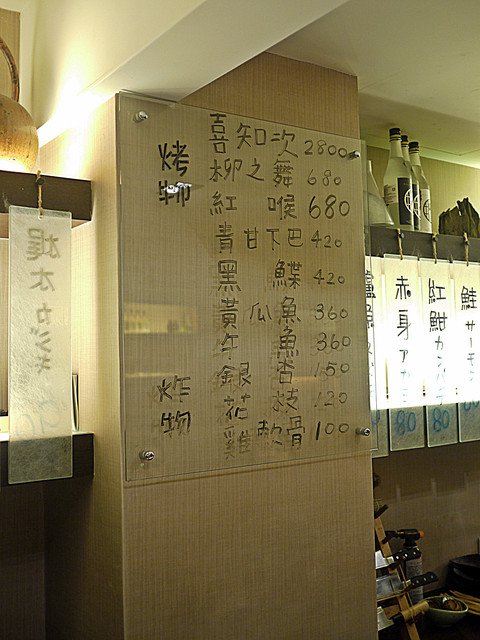 烤物
喜知次 2800
柳之舞 680
紅喉 680
青甘下巴 420
黑鰈 420
黃瓜魚 360
午魚 360
炸物
銀杏 150
花枝 120
雞軟骨 100
旗木カジキ
赤身
80
紅魽カン
80
鮭サーモン